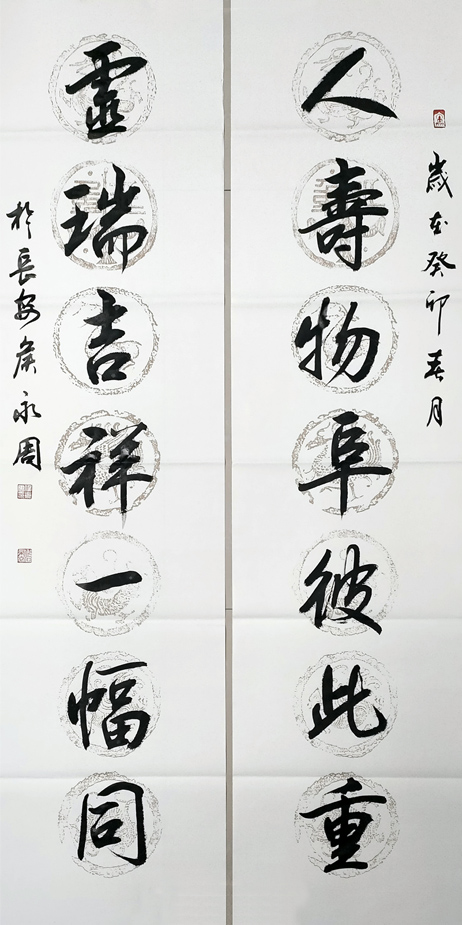 歲在癸卯春月
人壽物阜彼此重
靈瑞吉祥一幅同
於長安侯永周